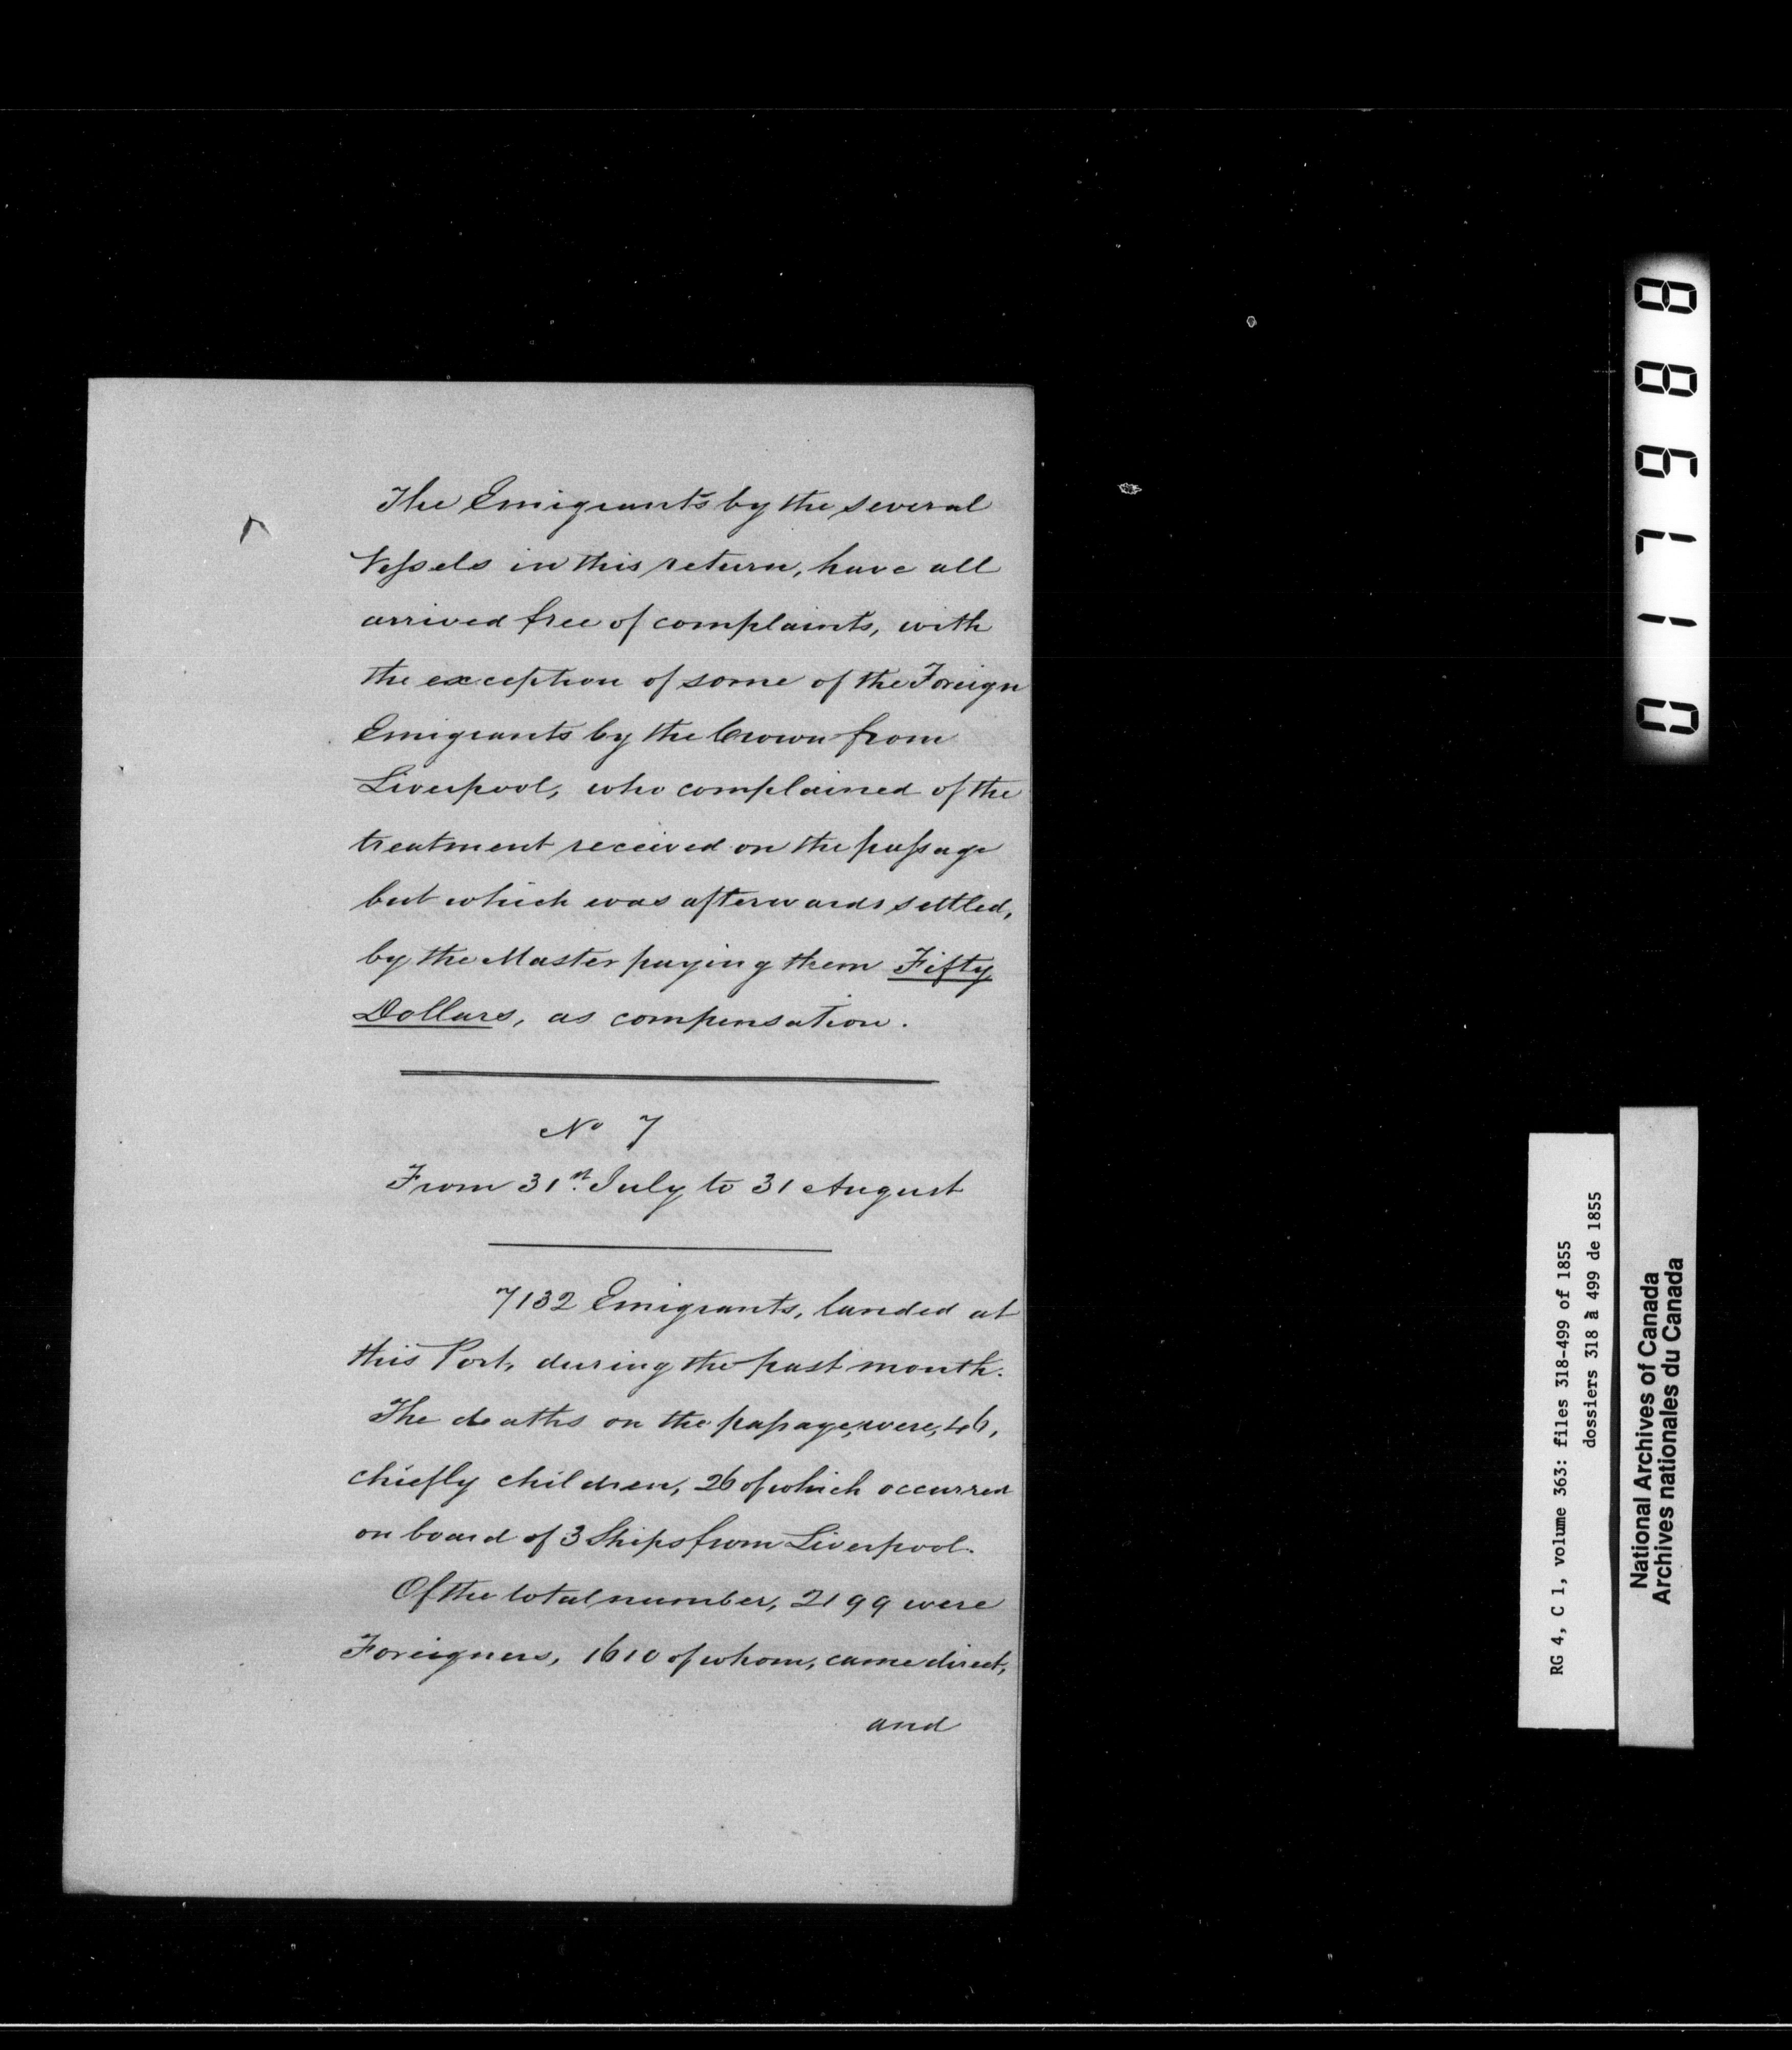 The Emigrants by the several
Vessels in this return, have all
arrived free of complaints, with
the exception of some of the Foreign
Emigrants by the Crown from
Liverpool, who complained of the
treatment received on the passage
but which was afterwards settled,
by the Master paying them Fifty
Dollars, as compensation.
No 7
From 31st July to 31 August
7132 Emigrants, landed at
this Port, during the past month.
The deaths on the passage, were, 46,
chiefly children, 26 of which occurred
on board of 3 Ships from Liverpool.
Of the total number, 2199 were
Foreigners, 1610 of whom, came direct,
and
017988
RG 4, C 1, volume 363: files 318-499 of 1855
dossiers 318 à 499 de 1855
National Archives of Canada
Archives nationales du Canada